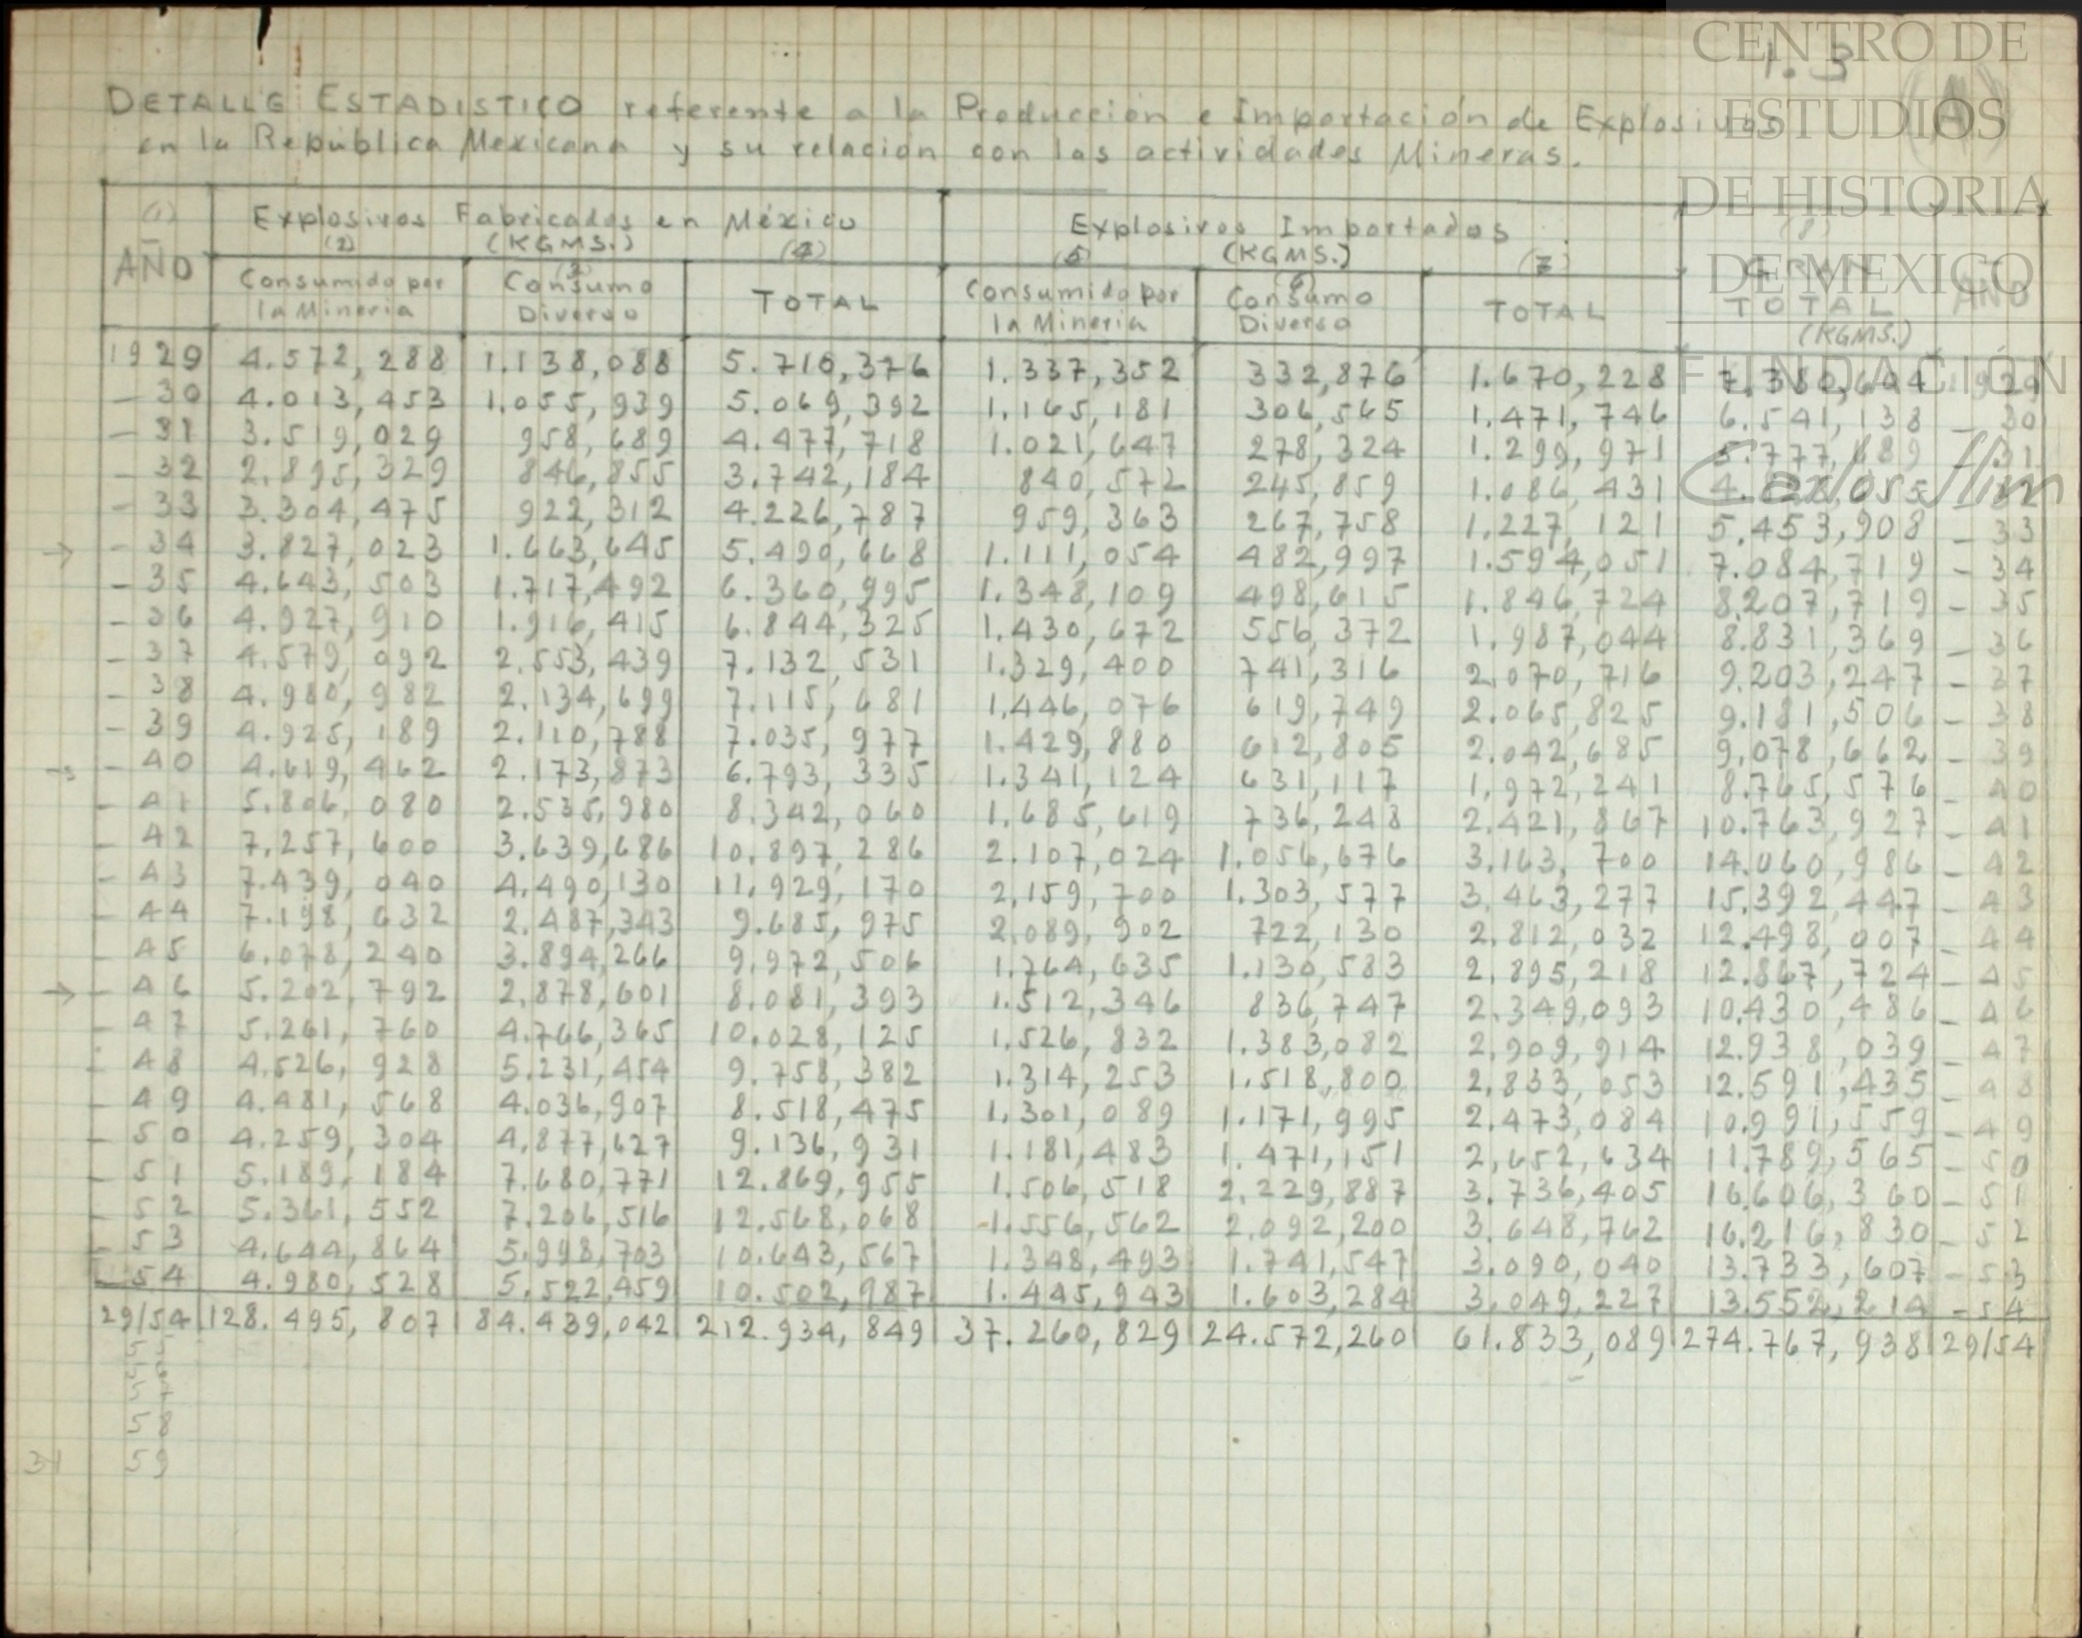 CENTRO DE
ESTUDIOS
DE HISTORIA
DE MEXICO
FUNDACIÓN
Carlos Slim
1.3
(A)
DETALLE ESTADISTICO referente a la Producción e Importación de Explosivos
en la República Mexicana y su relación con las actividades Mineras.
(1) AÑO Explosivos Fabricados en México (KGMS.) Explosivos Importados (KGMS.) (8) GRAN TOTAL (KGMS.) AÑO
(2) Consumido por la Mineria (3) Consumo Diverso (4) TOTAL (5) Consumido por la Mineria (6) Consumo Diverso (7) TOTAL
1929 4.572,288 1.138,088 5.710,376 1.337,352 332,876 1.670,228 7.380,604 1929
- 30 4.013,453 1.055,939 5.069,392 1.165,181 306,565 1.471,746 6.541,138 - 30
- 31 3.519,029 958,689 4.477,718 1.021,647 278,324 1.299,971 5.777,689 - 31
- 32 2.895,329 846,855 3.742,184 840,572 245,859 1.086,431 4.828,055 - 32
- 33 3.304,475 922,312 4.226,787 959,363 267,758 1.227,121 5.453,908 - 33
→ - 34 3.827,023 1.663,645 5.490,668 1.111,054 482,997 1.594,051 7.084,719 - 34
- 35 4.643,503 1.717,492 6.360,995 1.348,109 498,615 1.846,724 8.207,719 - 35
- 36 4.927,910 1.916,415 6.844,325 1.430,672 556,372 1.987,044 8.831,369 - 36
- 37 4.579,092 2.553,439 7.132,531 1.329,400 741,316 2.070,716 9.203,247 - 37
- 38 4.980,982 2.134,699 7.115,681 1.446,076 619,749 2.065,825 9.181,506 - 38
- 39 4.925,189 2.110,788 7.035,977 1.429,880 612,805 2.042,685 9.078,662 - 39
→ - 40 4.619,462 2.173,873 6.793,335 1.341,124 631,117 1.972,241 8.765,576 - 40
- 41 5.806,080 2.535,980 8.342,060 1.685,619 736,248 2.421,867 10.763,927 - 41
- 42 7.257,600 3.639,686 10.897,286 2.107,024 1.056,676 3.163,700 14.060,986 - 42
- 43 7.439,040 4.490,130 11.929,170 2.159,700 1.303,577 3.463,277 15.392,447 - 43
- 44 7.198,632 2.487,343 9.685,975 2.089,902 722,130 2.812,032 12.498,007 - 44
- 45 6.078,240 3.894,266 9.972,506 1.764,635 1.130,583 2.895,218 12.867,724 - 45
→ - 46 5.202,792 2.878,601 8.081,393 1.512,346 836,747 2.349,093 10.430,486 - 46
- 47 5.261,760 4.766,365 10.028,125 1.526,832 1.383,082 2.909,914 12.938,039 - 47
- 48 4.526,928 5.231,454 9.758,382 1.314,253 1.518,800 2.833,053 12.591,435 - 48
- 49 4.481,568 4.036,907 8.518,475 1.301,089 1.171,995 2.473,084 10.991,559 - 49
- 50 4.259,304 4.877,627 9.136,931 1.181,483 1.471,151 2.652,634 11.789,565 - 50
- 51 5.189,184 7.680,771 12.869,955 1.506,518 2.229,887 3.736,405 16.606,360 - 51
- 52 5.361,552 7.206,516 12.568,068 1.556,562 2.092,200 3.648,762 16.216,830 - 52
- 53 4.644,864 5.998,703 10.643,567 1.348,493 1.741,547 3.090,040 13.733,607 - 53
- 54 4.980,528 5.522,459 10.502,987 1.445,943 1.603,284 3.049,227 13.552,214 - 54
29/54 128.495,807 84.439,042 212.934,849 37.260,829 24.572,260 61.833,089 274.767,938 29/54
55
56
57
58
31 59